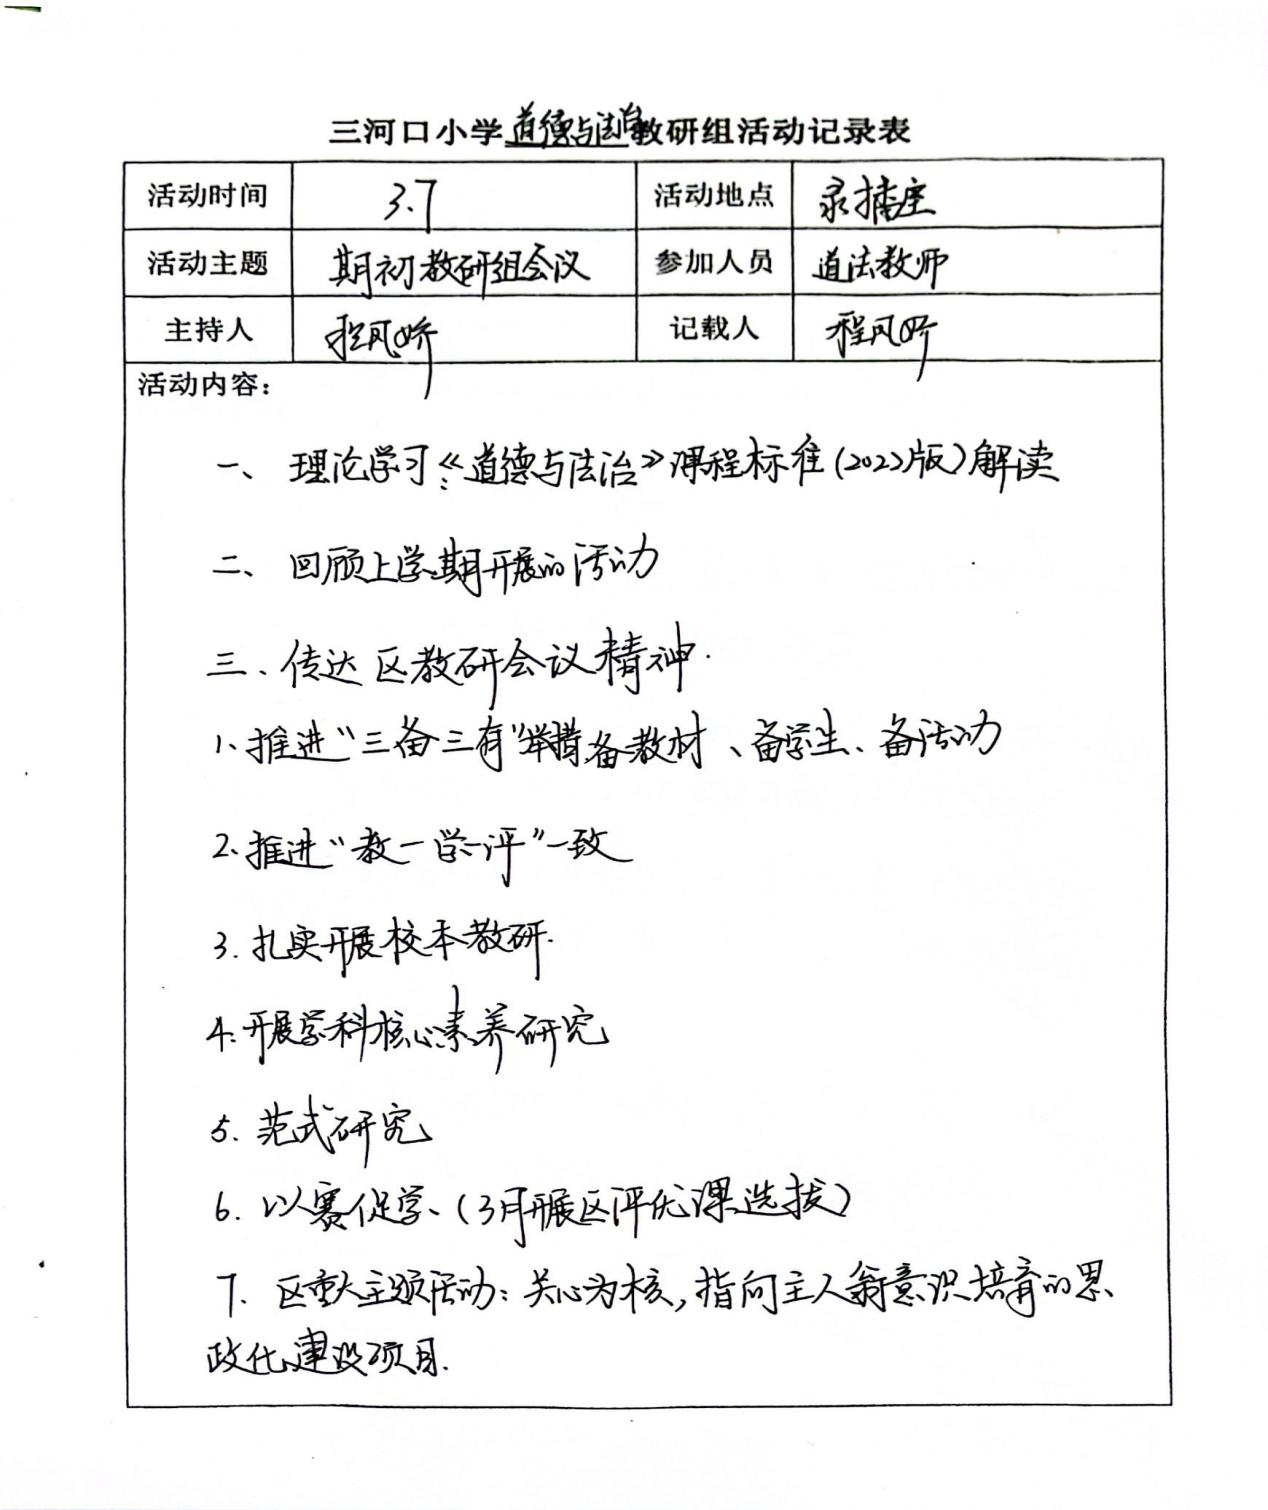 三河口小学道德与法治教研组活动记录表
活动时间 3.7 活动地点 录播室
活动主题 期初教研组会议 参加人员 道法教师
主持人 程凤娇 记载人 程凤娇
活动内容：
一、理论学习：《道德与法治》课程标准(2022版)解读
二、回顾上学期开展的活动
三、传达区教研会议精神.
1、推进“三备三有”举措,备教材、备学生、备活动
2、推进“教一学一评”一致
3.扎实开展校本教研.
4.开展学科核心素养研究
5.范式研究
6.以赛促学、(3月开展区评优课选拔)
7.区重大主题活动：关心为核,指向主人翁意识培育的思
政化建设项目.